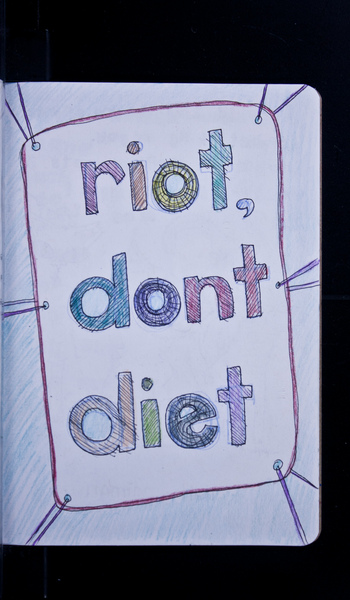 riot,
dont
diet